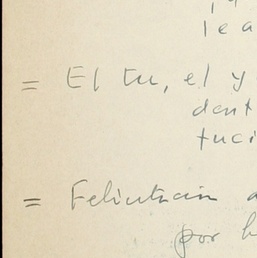 le a
= El tu, el y
dent
tuci
= Felicitación a
por h